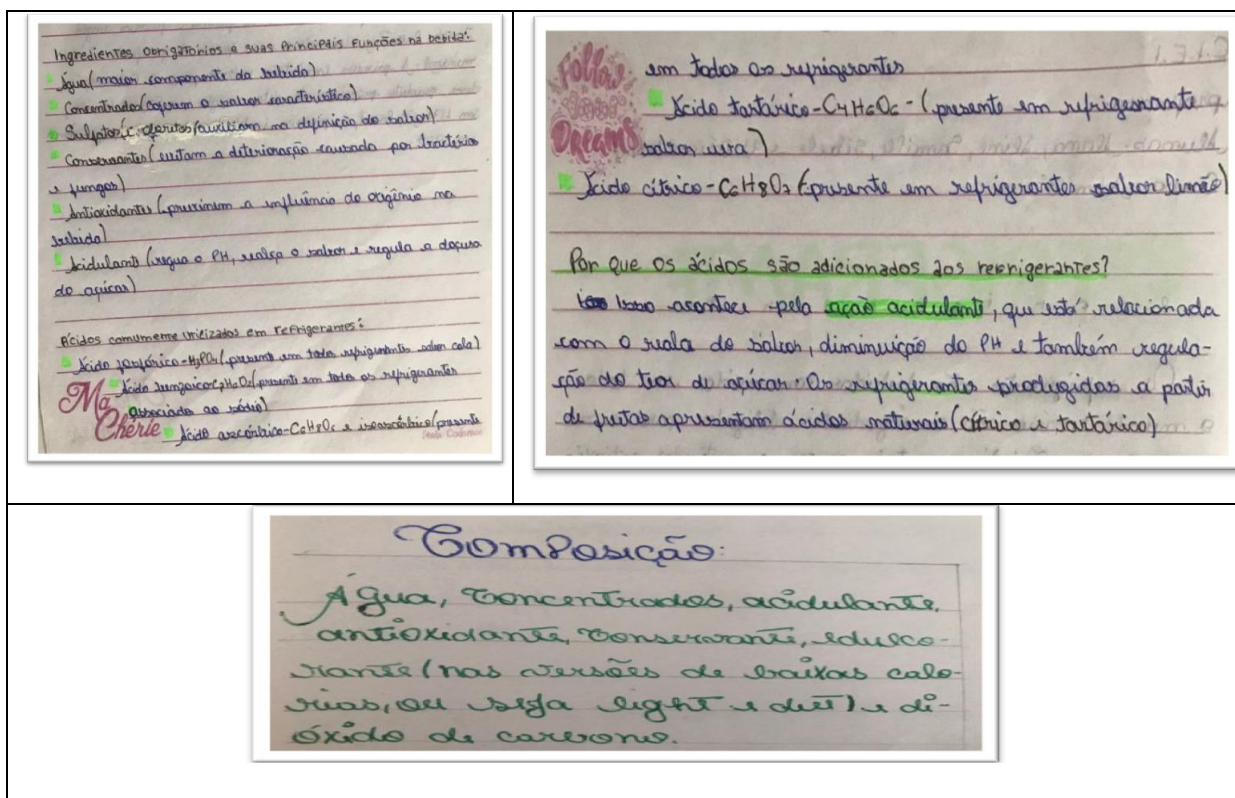 Ingredientes Obrigatórios e suas Principais Funções na bebida:
Água (maior componente da bebida)
Concentrados (conferem o sabor característico)
Sulfatos e cloretos (auxiliam na definição do sabor)
Conservantes (evitam a deterioração causada por bactérias
e fungos)
Antioxidantes (previnem a influência do oxigênio na
bebida)
Acidulante (regua o PH, realça o sabor e regula a doçura
do açúcar)
Ácidos comumente utilizados em refrigerantes:
Ácido fosfórico-H3PO4 (presente em todos refrigerantes sabor cola)
Ácido benzoico-C7H6O2 (presente em todos os refrigerantes
associado ao sódio)
Ma Chérie
Ácido ascórbico-C6H8O6 e isoascórbico (presente
em todos os refrigerantes
Follow your Dreams
Ácido tartárico-C4H6O6-(presente em refrigerante
sabor uva)
Ácido cítrico-C6H8O7 (presente em refrigerantes sabor limão)
Por que os ácidos são adicionados aos refrigerantes?
Isso acontece pela ação acidulante, que está relacionada
com o reala do sabor, diminuição do PH e também regula-
ção do teor de açúcar. Os refrigerantes produzidos a partir
de frutas apresentam ácidos naturais (cítrico e tartárico)
Composição:
Água, concentrados, acidulante,
antioxidante, conservante, edulco-
rante (nas versões de baixas calo-
rias, ou seja light e diet) e di-
óxido de carbono.